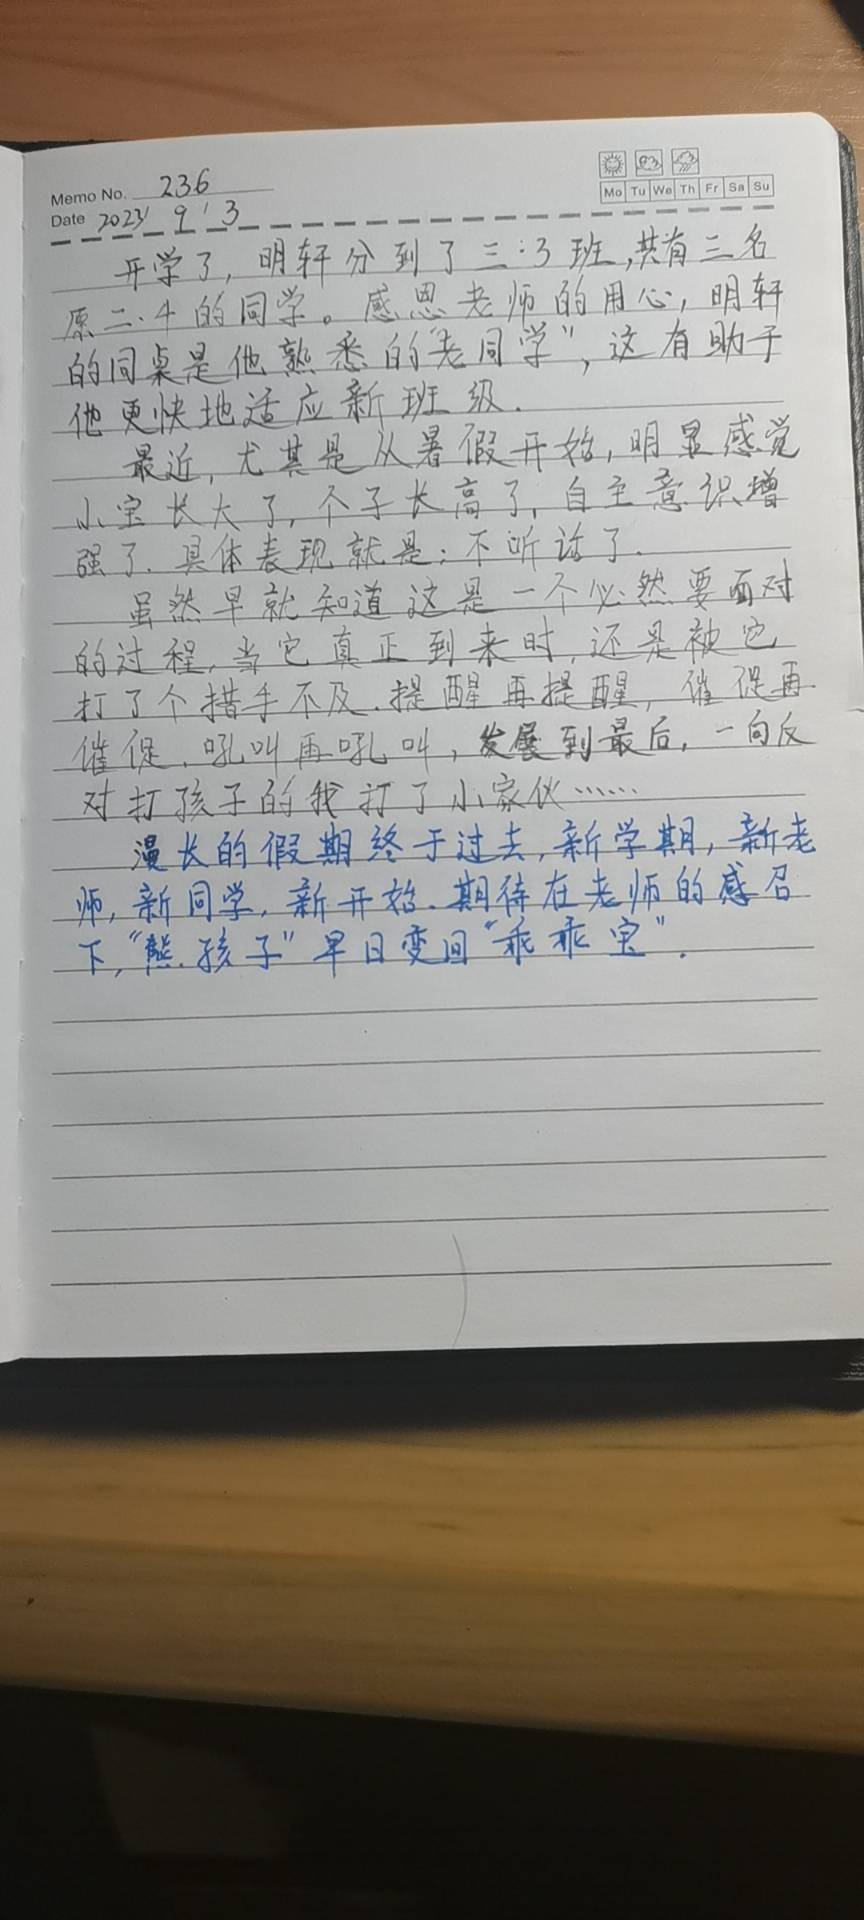 Memo No. 236
Mo Tu We Th Fr Sa Su
Date 2023/ 9 / 3
开学了，明轩分到了三:3班，共有三名
原二.4的同学。感恩老师的用心，明轩
的同桌是他熟悉的“老同学”，这有助于
他更快地适应新班级.
最近，尤其是从暑假开始，明显感觉
小宝长大了，个子长高了，自主意识增
强了.具体表现就是：不听话了.
虽然早就知道这是一个必然要面对
的过程，当它真正到来时，还是被它
打了个措手不及.提醒再提醒，催促再
催促，吼叫再吼叫，发展到最后，一向反
对打孩子的我打了小家伙……
漫长的假期终于过去，新学期，新老
师，新同学，新开始.期待在老师的感召
下，“熊孩子”早日变回“乖乖宝”.